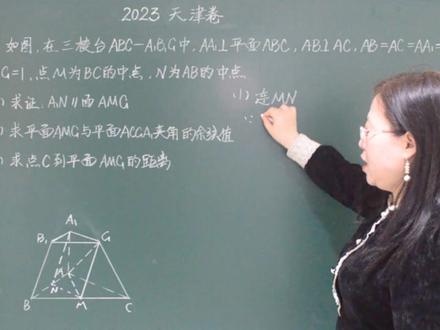 2023 天津卷
如图,在三棱台ABC-A₁B₁C₁中,AA₁⊥平面ABC,AB⊥AC,AB=AC=AA₁=
C₁=1,点M为BC的中点,N为AB的中点
)求证 A₁N∥面AMC₁
)求平面AMC₁与平面ACC₁A₁夹角的余弦值
)求点C到平面AMC₁的距离
(1)连MN
∵
A₁
B₁
C₁
N
B
M
C